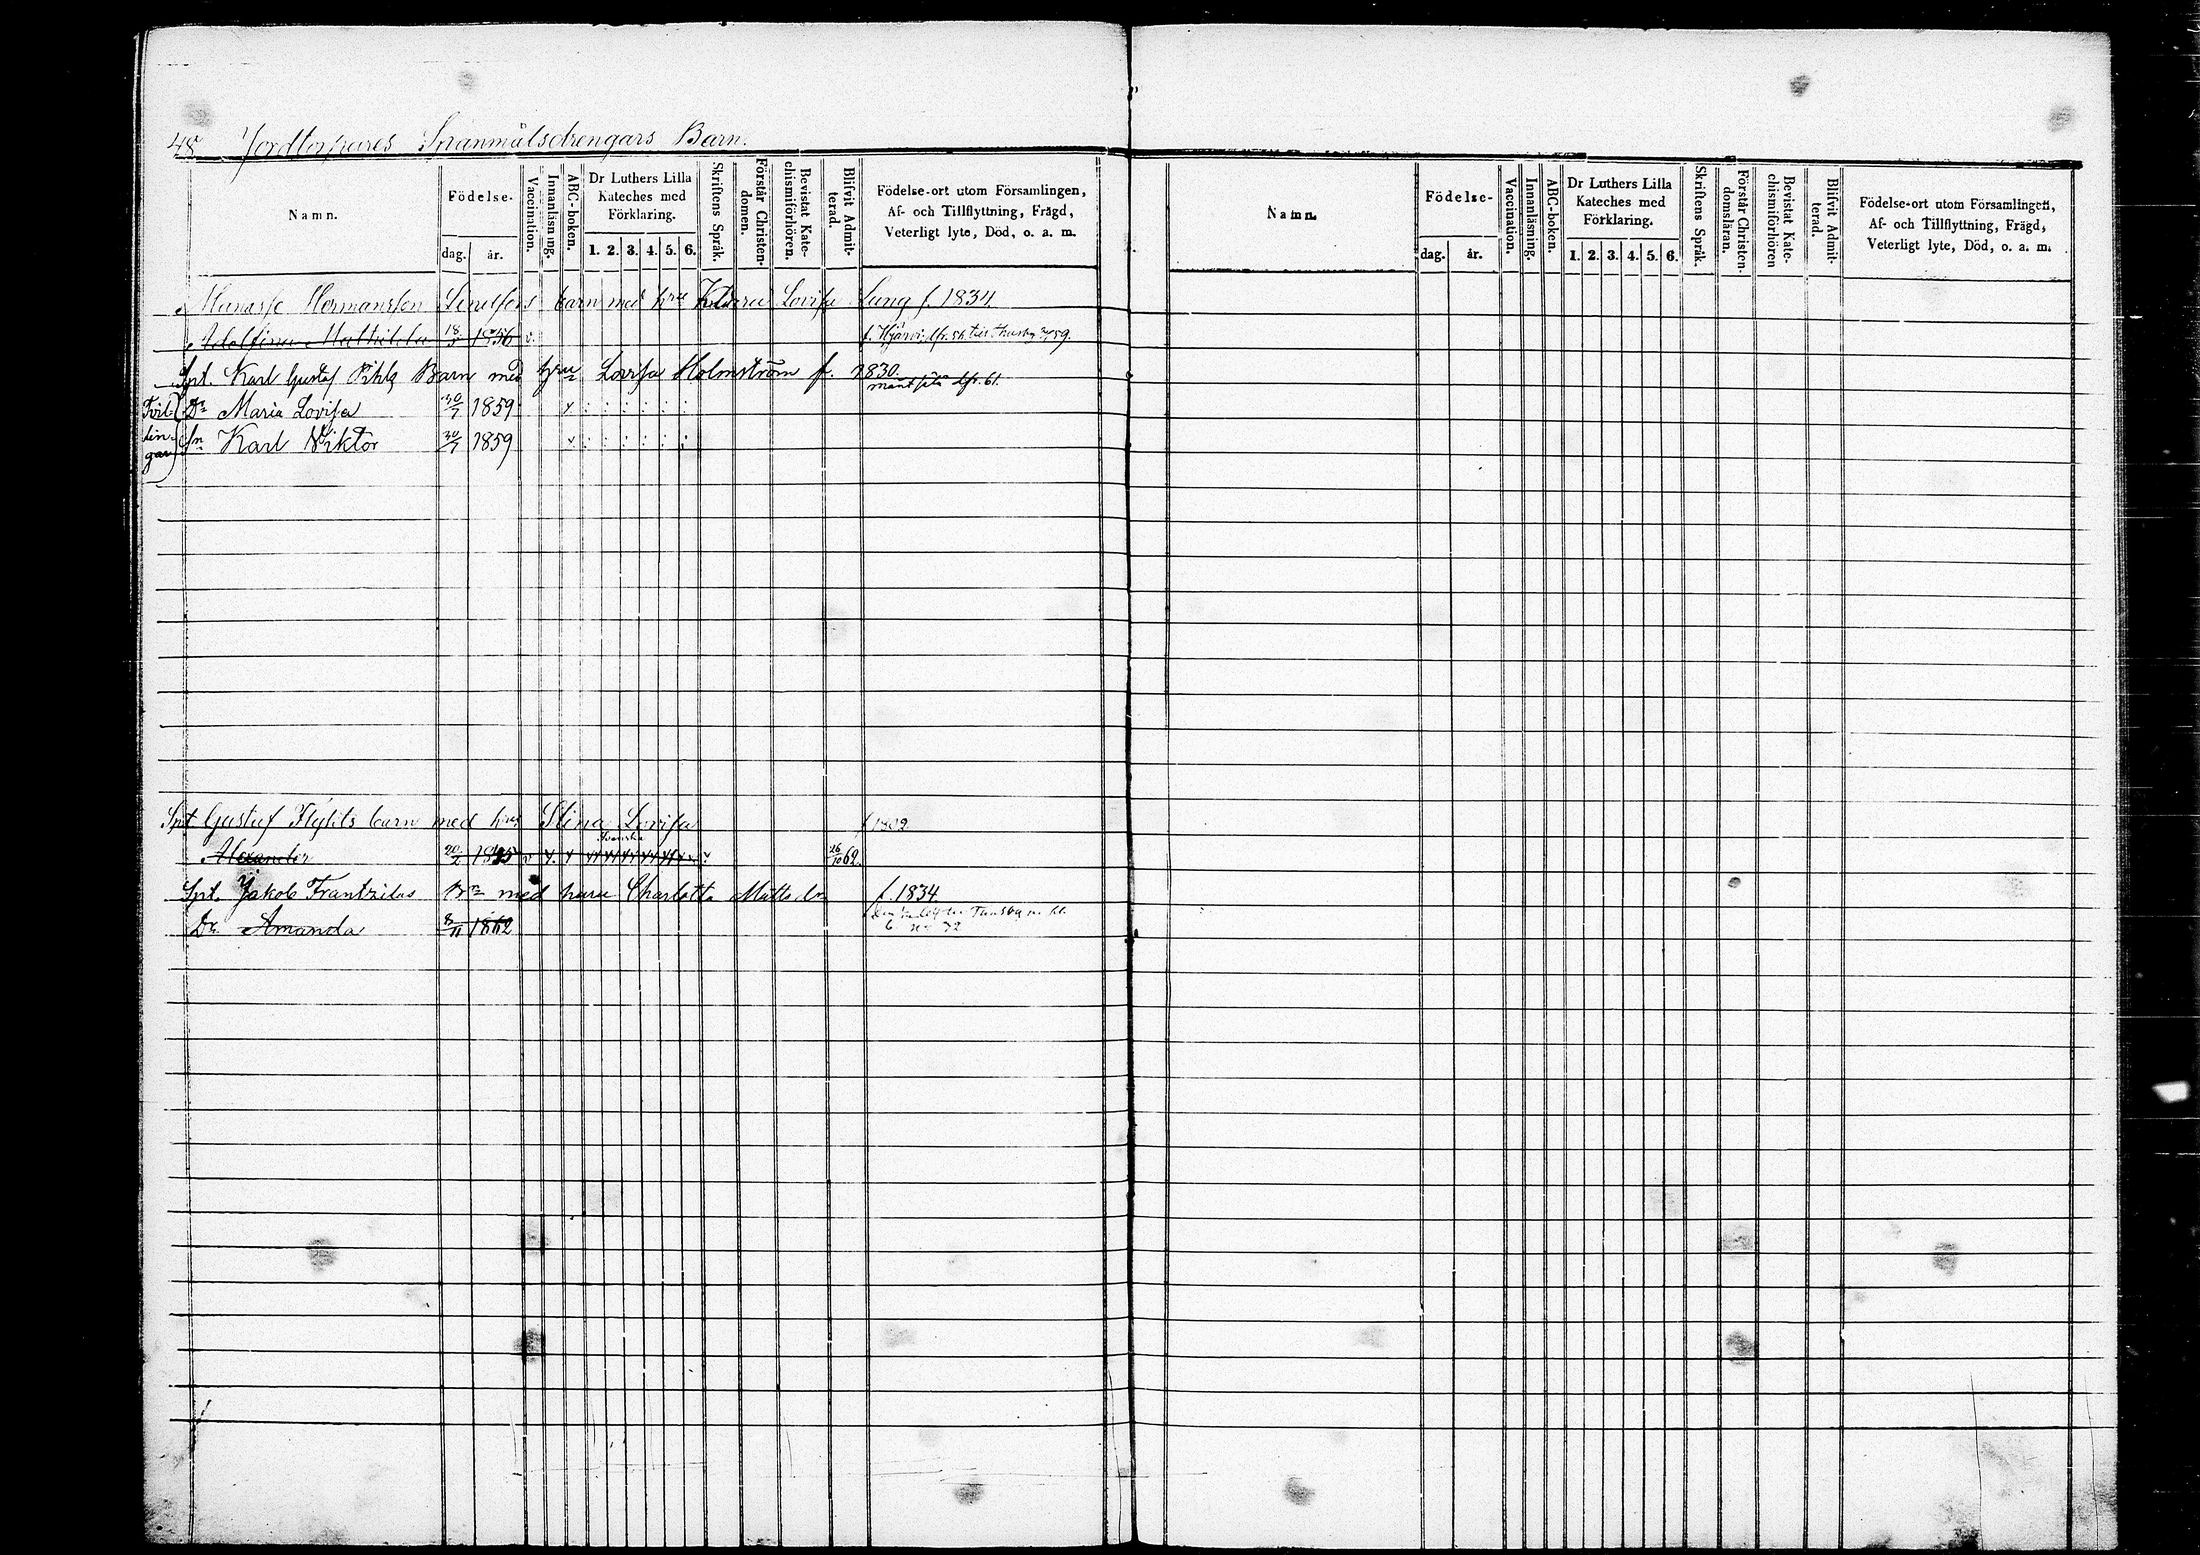 48 Jordtorpares Spanmålsdrengars Barn.
Namn. Födelse- dag. år. Vaccination. Innanläsning. ABC-boken. Dr Luthers Lilla Kateches med Förklaring. 1. 2. 3. 4. 5. 6. Skriftens Språk. Förstår Christen-domen. Bevistat Kate-chismiförhören. Blifvit Admit-terad. Födelse-ort utom Församlingen, Af- och Tillflyttning, Frägd, Veterligt lyte, Död, o. a. m.
Manasse Hermansson barn med hru Lovisa Ljung f. 1834
Adolfina Mathilda 18/5 1856 v.
Spt. Karl Gustaf Pihls Barn med hru Lovisa Holmström f. 1830.
Tvil- Dr Maria Lovisa 30/7 1859
lin- Sn Karl Viktor 30/7 1859
gar
Spt Gustaf Flykts barn med hru Stina Lovisa f 1802
Svenska
Alexander 20/2 1845 26/10 62.
Spt. Jakob Frantzilas Brn med hru Charlotta Mattsdr f. 1834
Dr. Amanda 8/11 1862
Namn. Födelse- dag. år. Vaccination. Innanläsning. ABC-boken. Dr Luthers Lilla Kateches med Förklaring. 1. 2. 3. 4. 5. 6. Skriftens Språk. Förstår Christen-domsläran. Bevistat Kate-chismiförhören Blifvit Admit-terad. Födelse-ort utom Församlingen, Af- och Tillflyttning, Frägd, Veterligt lyte, Död, o. a. m.